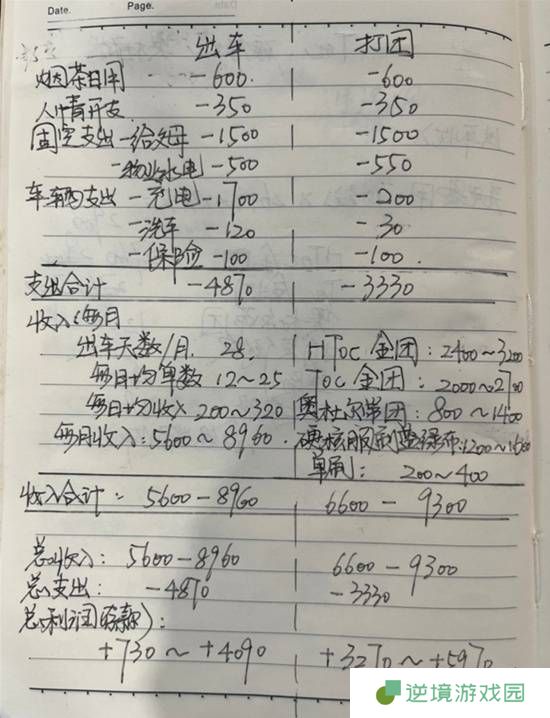 Date. Page.
出车 打团
烟茶日用 -600. -600
人情开支 -350 -350
固定支出-给父母 -1500 -1500
-物业水电 -500 -550
车辆支出-充电 -1700 -200
-洗车 -120 -30
-保险 -100 -100.
支出合计 -4870 -3330
收入(每月
出车天数/月. 28. HToc 金团: 2400~3200
每日均单数 12~25 Toc 金团: 2000~2700
每日均收入 200~320 奥杜尔单团: 800~1400
每月收入: 5600~8960. 硬核服刷蓝绿布: 1200~1600
单刷: 200~400
收入合计: 5600-8960 6600-9300
总收入: 5600-8960 6600-9300
总支出: -4870 -3330
总利润(存款):
+730~+4090 +3270~+5970
逆境游戏园